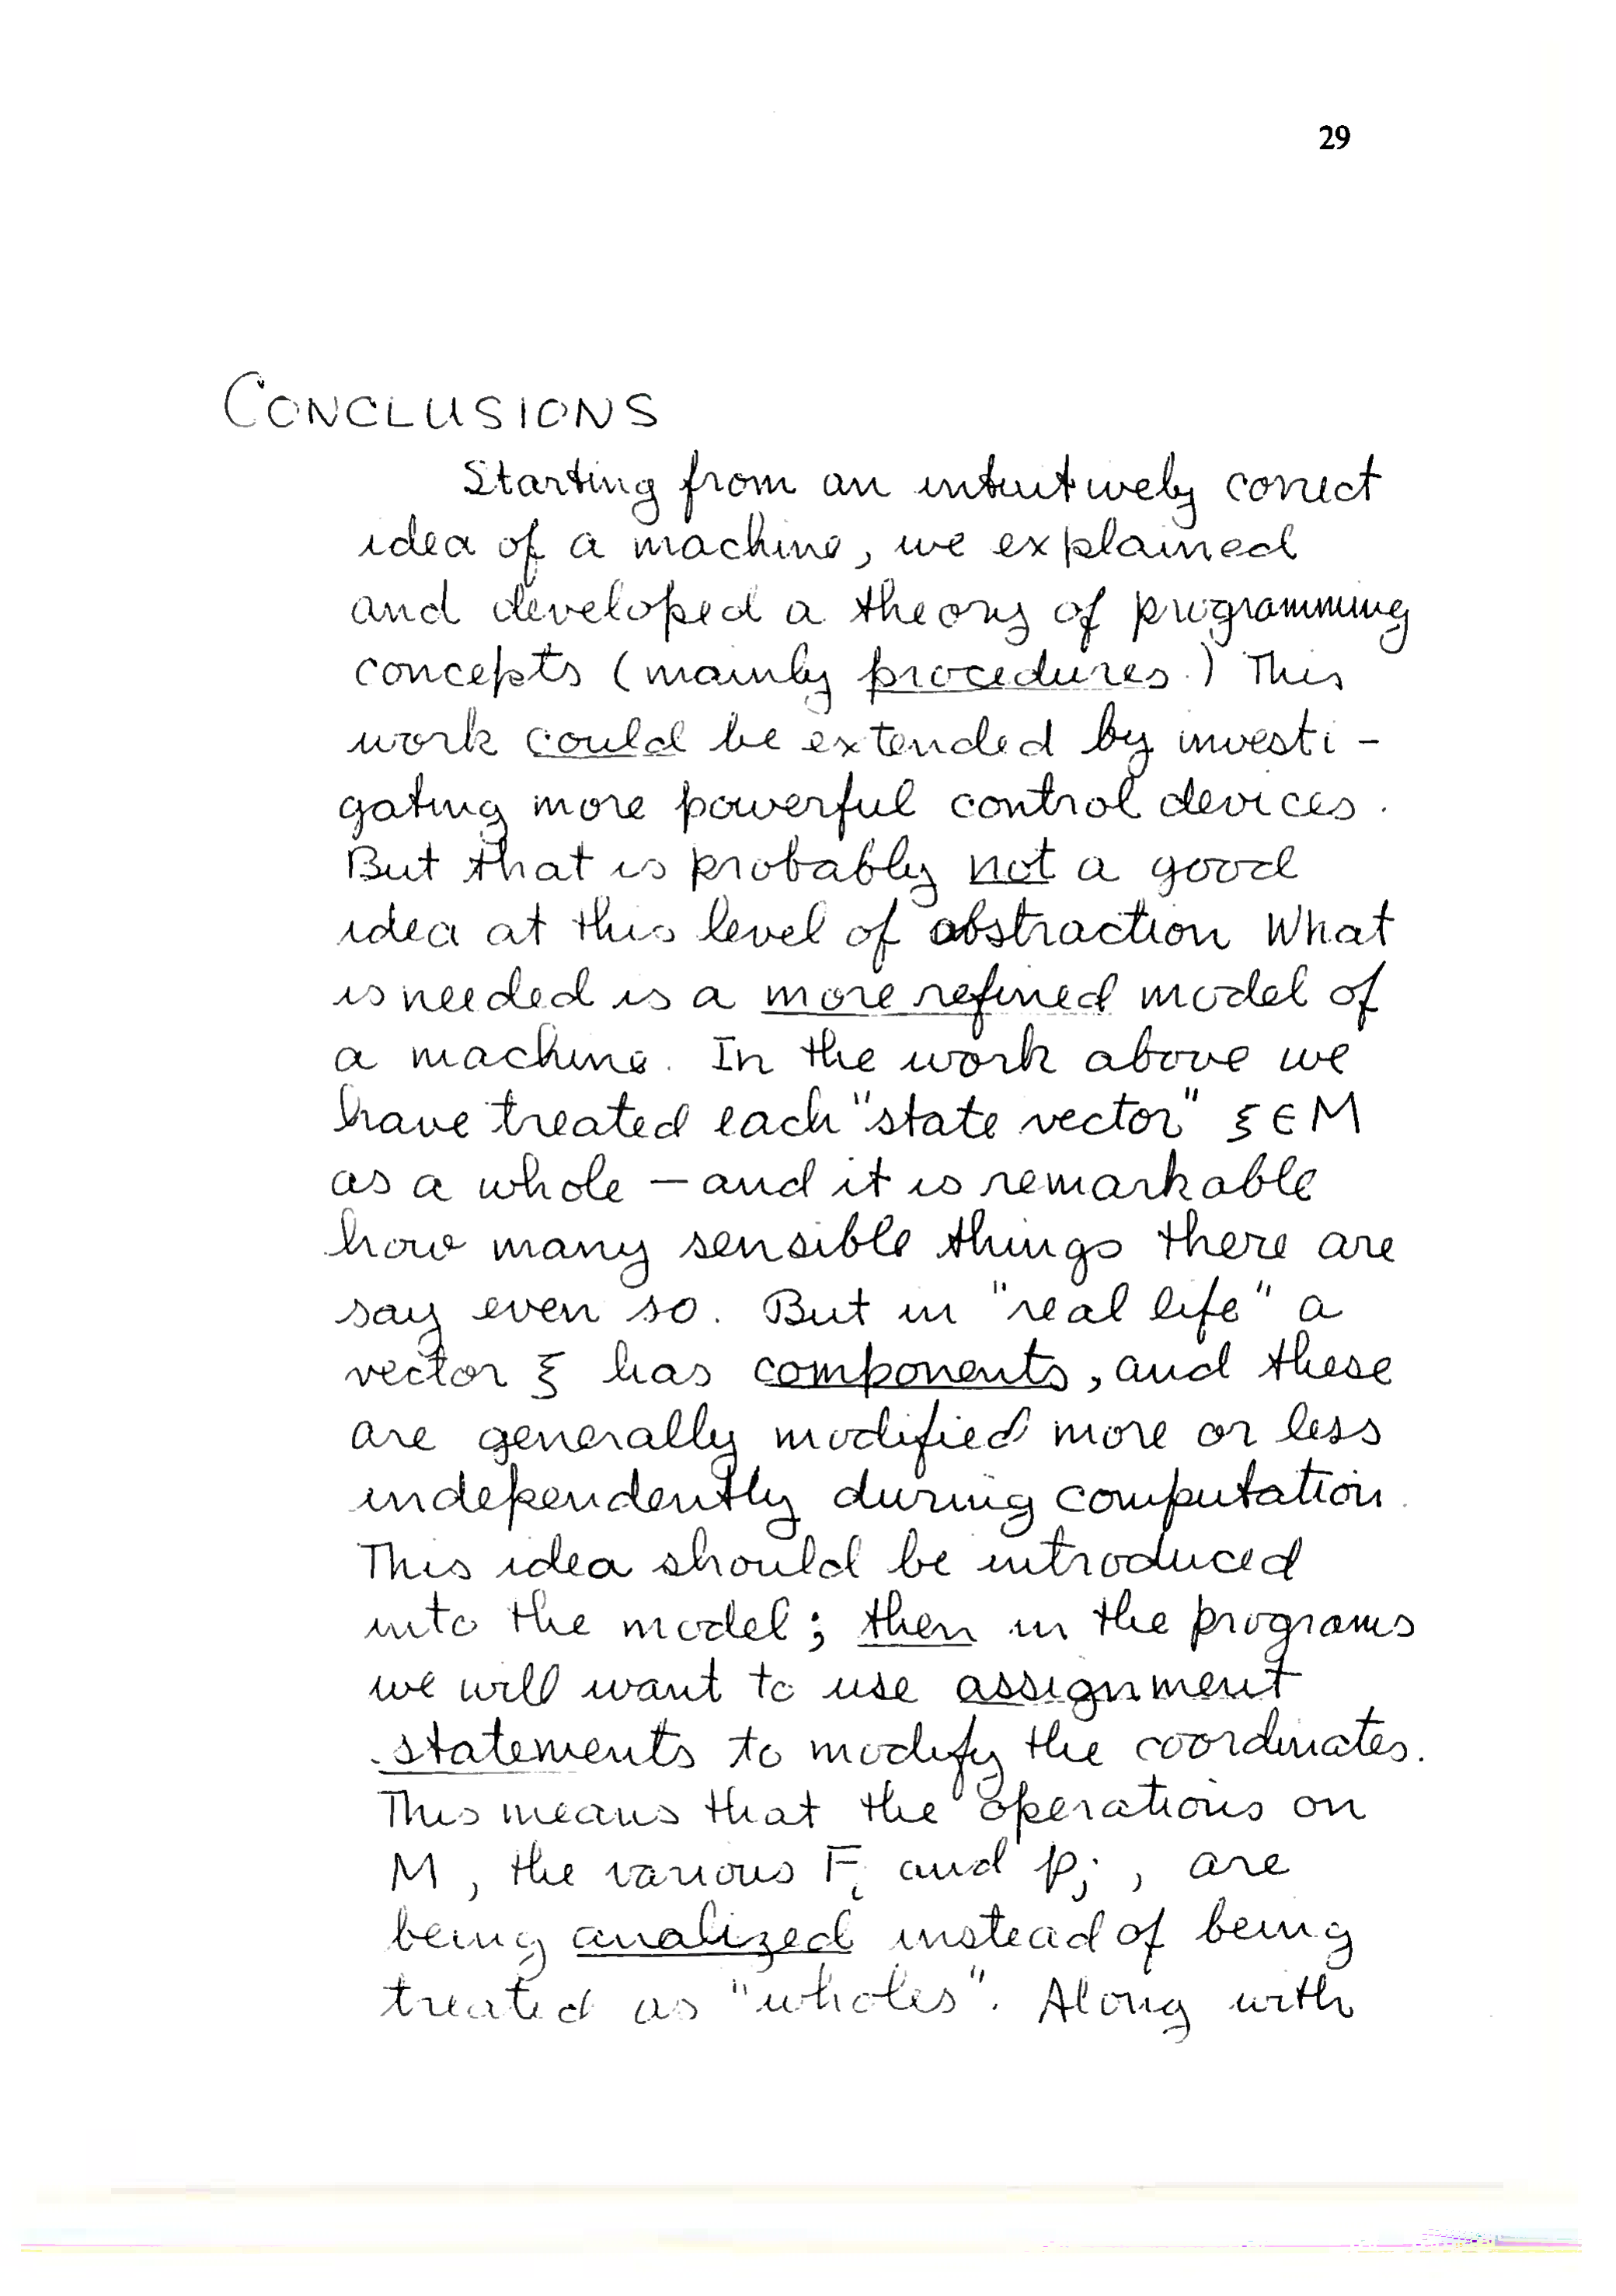 29
CONCLUSIONS
Starting from an intuitively correct
idea of a machine, we explained
and developed a theory of programming
concepts (mainly procedures.) This
work could be extended by investi-
gating more powerful control devices.
But that is probably not a good
idea at this level of abstraction What
is needed is a more refined model of
a machine. In the work above we
have treated each "state vector" ξ ∈ M
as a whole — and it is remarkable
how many sensible things there are
say even so. But in "real life" a
vector ξ has components, and these
are generally modified more or less
independently during computation.
This idea should be introduced
into the model; then in the programs
we will want to use assignment
statements to modify the coordinates.
This means that the operations on
M, the various Fᵢ and pⱼ, are
being analized instead of being
treated as "wholes". Along with